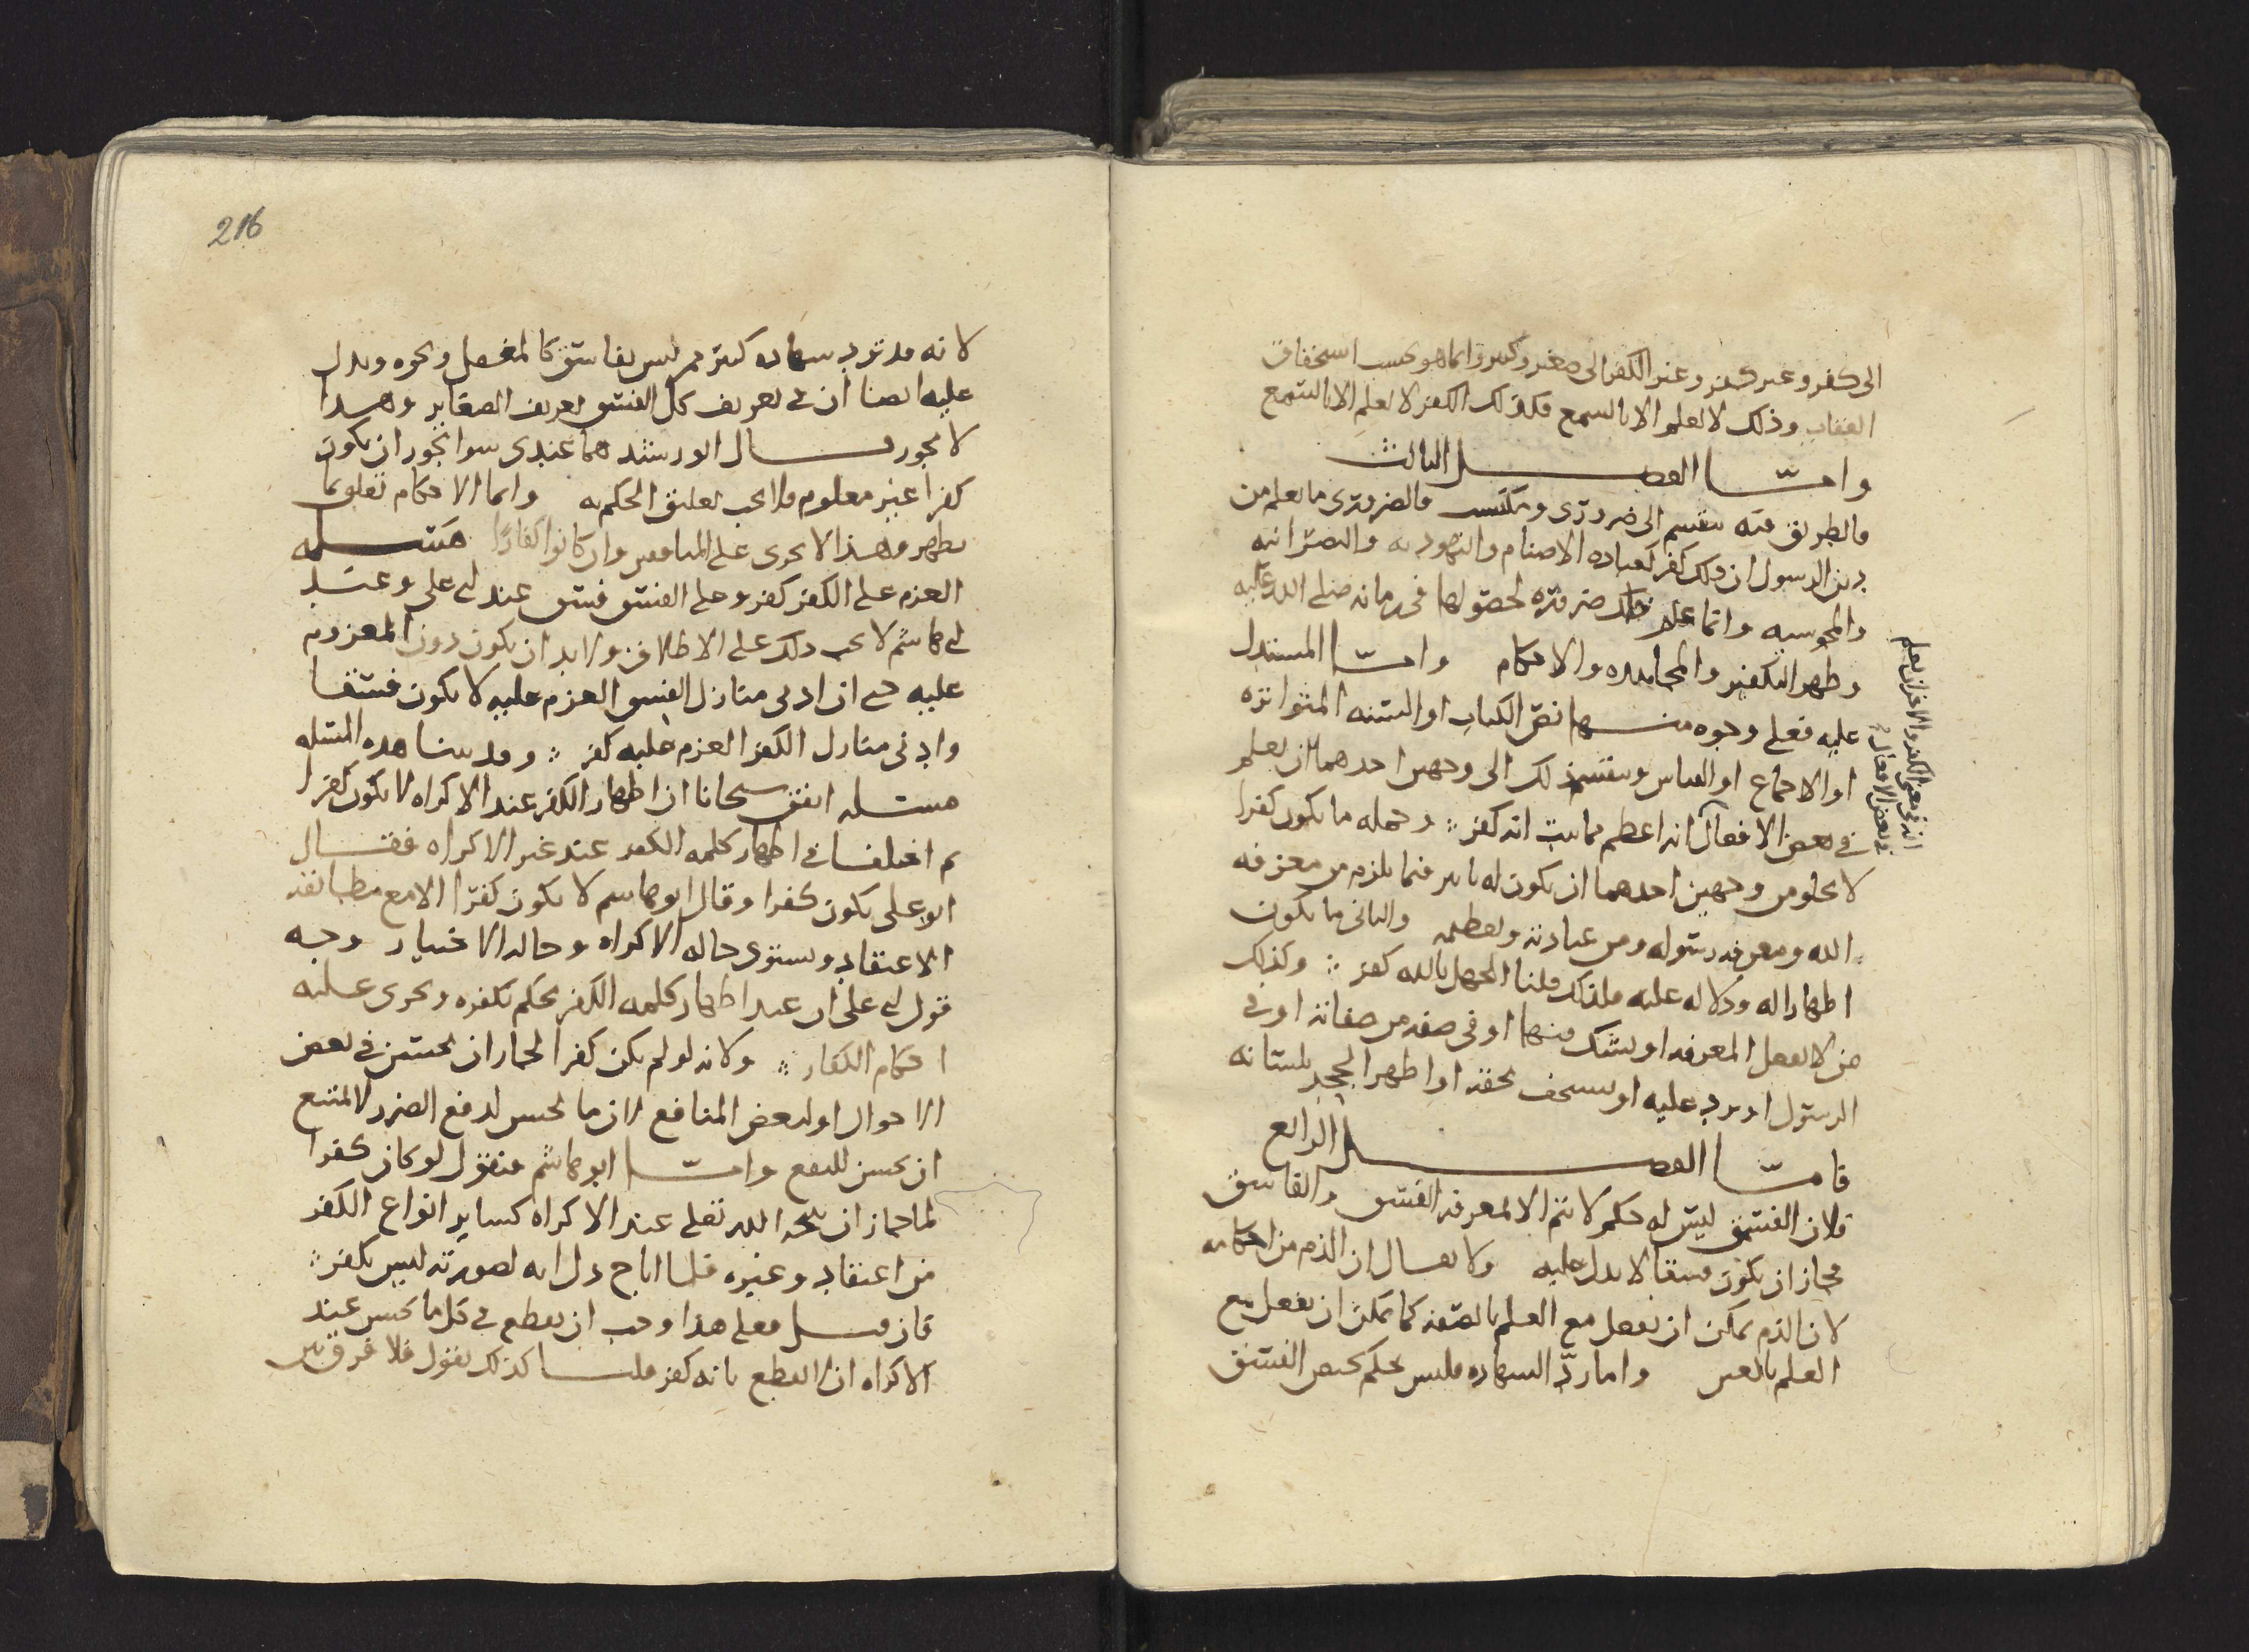 الى كفر وغير كفر وغير الكفر الى صغير وكبير وانما هو بحسب استحقاق
العقاب وذلك لا يعلم الا بالسمع فكذلك الكفر لا يعلم الا بالسمع
وامّا الفصل الثالث
فالطريق فيه ينقسم الى ضروري ومكتسب فالضروري ما يعلم من
دين الرسول ان ذلك كفر كعباده الاصنام واليهوديه والنصرانيه
والمجوسيه وانما علم ذلك ضروره لحصولها في زمانه صلى الله عليه
وظهر التكفير والمجاهده والاحكام وامّا المستدل
عليه فعلى وجوه منها نص الكتاب او السنه المتواتره
او الاجماع او القياس وينقسم ذلك الى وجهين احدهما ان يعلم
في بعض الافعال انه اعظم مما ثبت انه كفر وجمله ما يكون كفرا
لا يخلو من وجهين احدهما ان يكون له تاثير فيما يلزم من معرفه
الله ومعرفه رسوله ومن عبادته وتعظيمه والثاني ما يكون
اظهارا له ودلاله عليه فلذلك قلنا الجهل بالله كفر وكذلك
من لا يفعل المعرفه او يشك فيها او في صفه من صفاته او في
الرسول او يرد عليه او يستخف بحقه او اظهر الجحد بلسانه
فامّا الفصل الرابع
فلان الفسق ليس له حكم لا يتم الا لمعرفه الفسق والفاسق
فجاز ان يكون فسقا لا يدل عليه ولا يقال ان الذم من احكامه
لان الذم يمكن ان يفعل مع العلم بالصفه كما يمكن ان يفعل مع
العلم بالعين واما ردّ الشهاده فليس بحكم يخص الفسق
انه في معنى الكفر والاخر ان يعلم
في بعض الافعال
216
لانه قد ترد شهاده كثير ممن ليس بفاسق كالمغفل ونحوه ويدل
عليه ايضا ان في تعريف كل الفسق تعريف الصغاير وهذا
لا يجوز قال ابو رشيد هما عندي سوا يجوز ان يكون
كفرا غير معلوم فلا يجب تعليق الحكم به وانما الاحكام تعلق بما
يظهر ولهذا لا يجرى على المنافقين وان كانوا كفارًا مسئله
العزم على الكفر كفر وعلى الفسق فسق عند ابي علي وعند
ابي هاشم لا يجب ذلك على الاطلاق ولا بد ان يكون دون المعزوم
عليه حتى ان ادنى منازل الفسق العزم عليه لا يكون فسقا
وادنى منازل الكفر العزم عليه كفر وقد بينا هذه المسئله
مسئله اتفق شيخانا ان اظهار الكفر عند الاكراه لا يكون كفرا
ثم اختلفا في اظهار كلمه الكفر عند غير الاكراه فقال
ابو علي يكون كفرا وقال ابو هاشم لا يكون كفرا الا مع مطابقه
الاعتقاد ويستوى حاله الاكراه وحاله الاختيار وجه
قول ابي على ان عند اظهار كلمه الكفر يحكم بكفره ويجرى عليه
احكام الكفار ولانه لو لم يكن كفرا لجاز ان يحسن في بعض
الاحوال او لبعض المنافع لان ما يحسن لدفع الضرر لا يمتنع
ان يحسن للنفع وامّا ابو هاشم فيقول لو كان كفرا
لما جاز ان يبيحه الله تعلى عند الاكراه كساير انواع الكفر
من اعتقاد وغيره فلما اباح دل انه لصورته ليس بكفر
فان قيل فعلى هذا وجب ان يقطع في كل ما يحسن عند
الاكراه ان القطع بانه كفر قلنا كذلك نقول فلا فرق بين